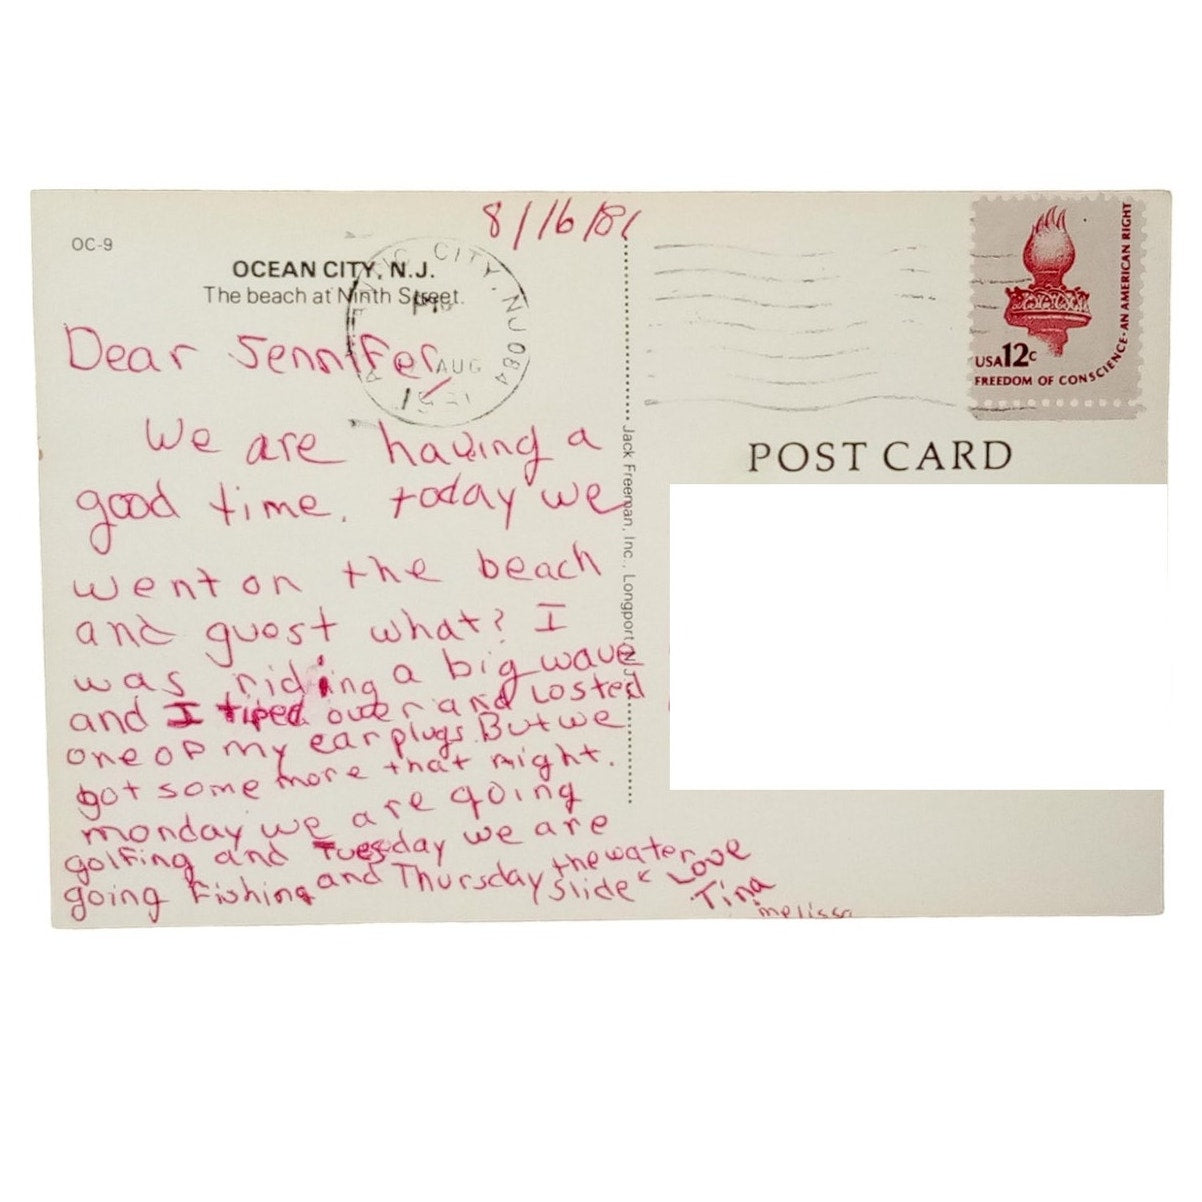 8/16/81
OC-9
OCEAN CITY, N.J.
The beach at Ninth Street.
CITY, NJ 084
PM
AUG
Dear Jennifer,
We are having a
good time. today we
went on the beach
and guest what? I
was riding a big wave
and I tiped over and Losted
one of my earplugs. But we
got some more that night.
monday we are going
golfing and Tuesday we are
going fishing and Thursday the water
slide
Love
Tina
melissa
Jack Freeman, Inc., Longport, N.J.
USA 12c
FREEDOM OF CONSCIENCE·AN AMERICAN RIGHT
POST CARD